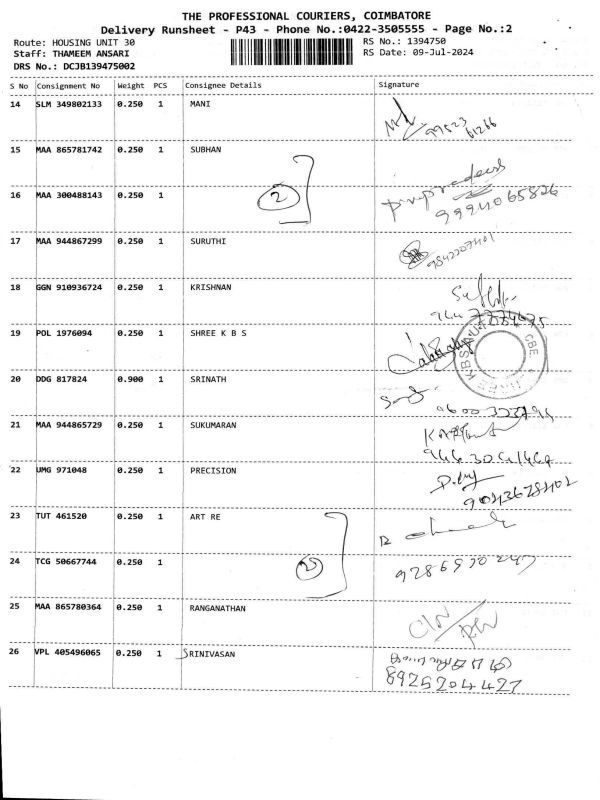 THE PROFESSIONAL COURIERS, COIMBATORE
Delivery Runsheet - P43 - Phone No.:0422-3505555 - Page No.:2
Route: HOUSING UNIT 30 RS No.: 1394750
Staff: THAMEEM ANSARI RS Date: 09-Jul-2024
DRS No.: DCJB139475002
S No Consignment No Weight PCS Consignee Details Signature
14 SLM 349802133 0.250 1 MANI
99523
61266
15 MAA 865781742 0.250 1 SUBHAN
16 MAA 300488143 0.250 1 2
9994065826
17 MAA 944867299 0.250 1 SURUTHI
9842207401
18 GGN 910936724 0.250 1 KRISHNAN
19 POL 1976094 0.250 1 SHREE K B S
20 DDG 817824 0.900 1 SRINATH
21 MAA 944865729 0.250 1 SUKUMARAN
22 UMG 971048 0.250 1 PRECISION
23 TUT 461520 0.250 1 ART RE
24 TCG 50667744 0.250 1
25 MAA 865780364 0.250 1 RANGANATHAN
26 VPL 405496065 0.250 1 SRINIVASAN